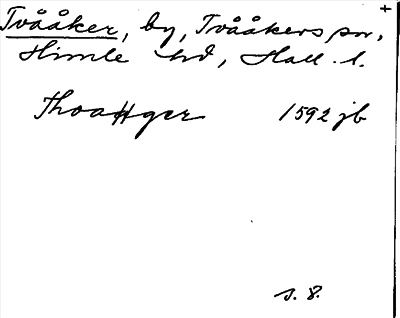 Tvååker, by, Tvååkers sn,
Himle hd, Hall. l.
Thoaager 1592 jb
s. 8.